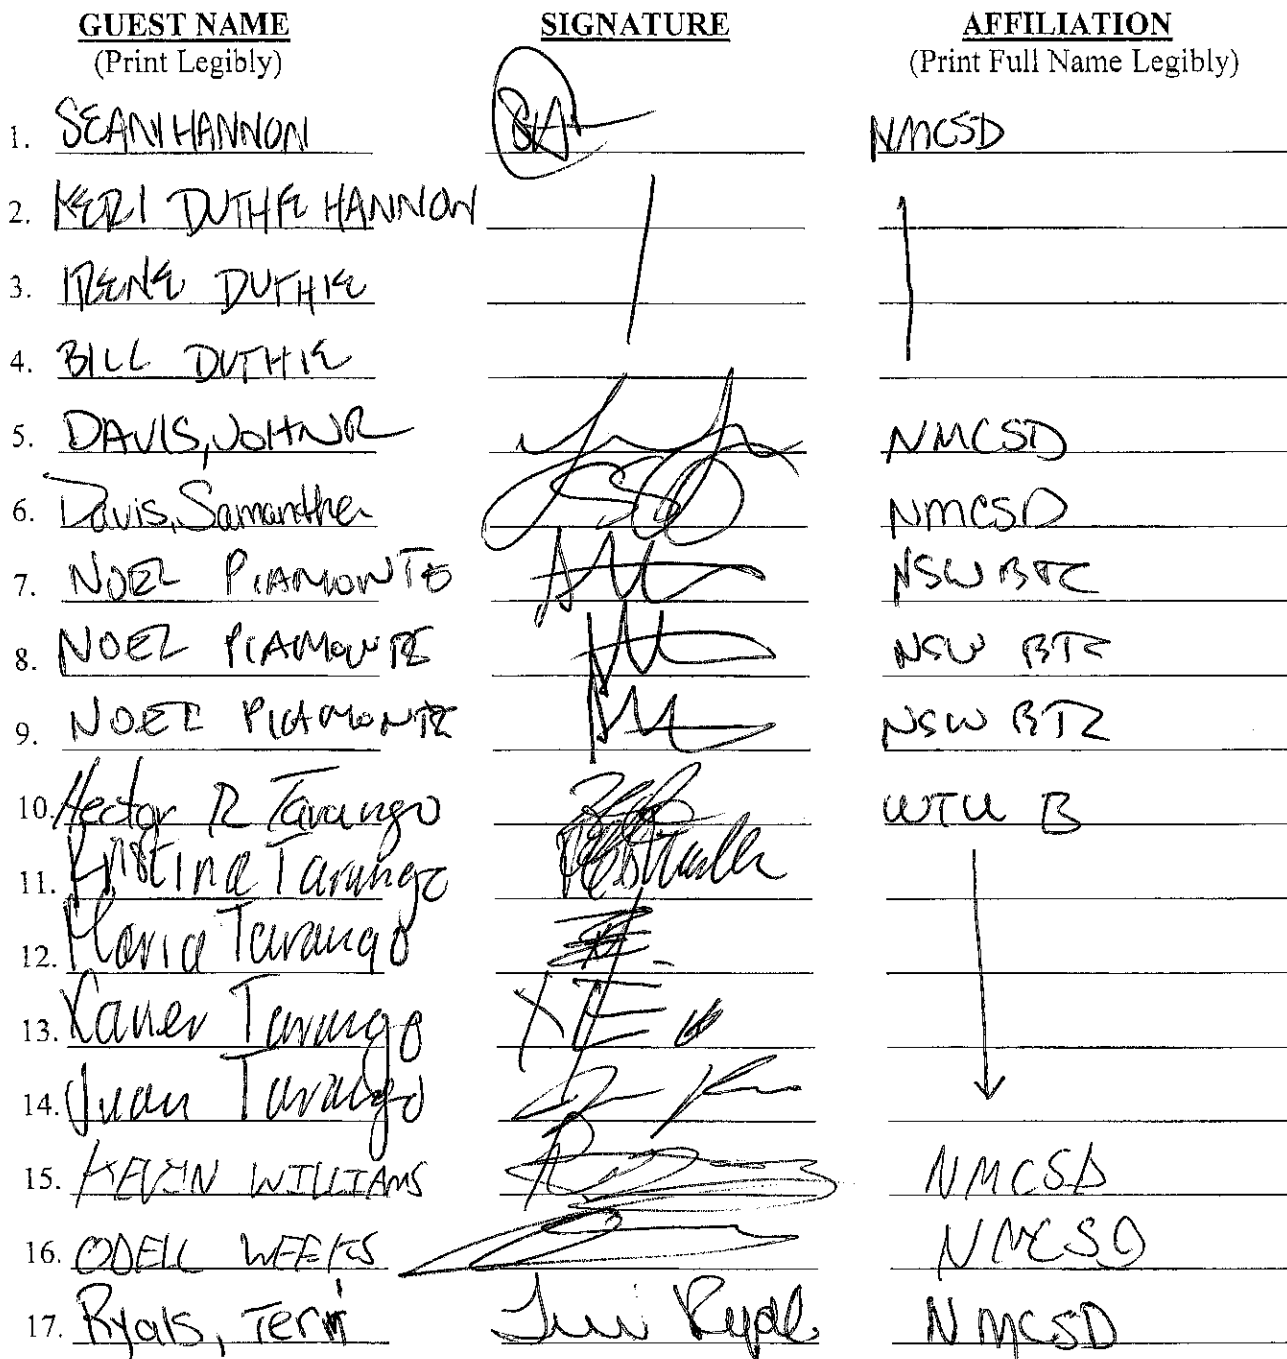 GUEST NAME SIGNATURE AFFILIATION
(Print Legibly) (Print Full Name Legibly)
1. SEAN HANNON NMCSD
2. KERI DUTHIE HANNON
3. IRENE DUTHIE
4. BILL DUTHIE
5. DAVIS, JOHN R NMCSD
6. Davis, Samantha NMCSD
7. NOEL PIAMONTE NSW BTC
8. NOEL PIAMONTE NSW BTC
9. NOEL PIAMONTE NSW BTC
10. Hector R Tarango WTU B
11. Kristina Tarango
12. Maria Tarango
13. Xavier Tarango
14. Juan Tarango
15. KEVIN WILLIAMS NMCSD
16. ODELL WEEKS NMCSD
17. Ryals, Terri Terri Ryals NMCSD